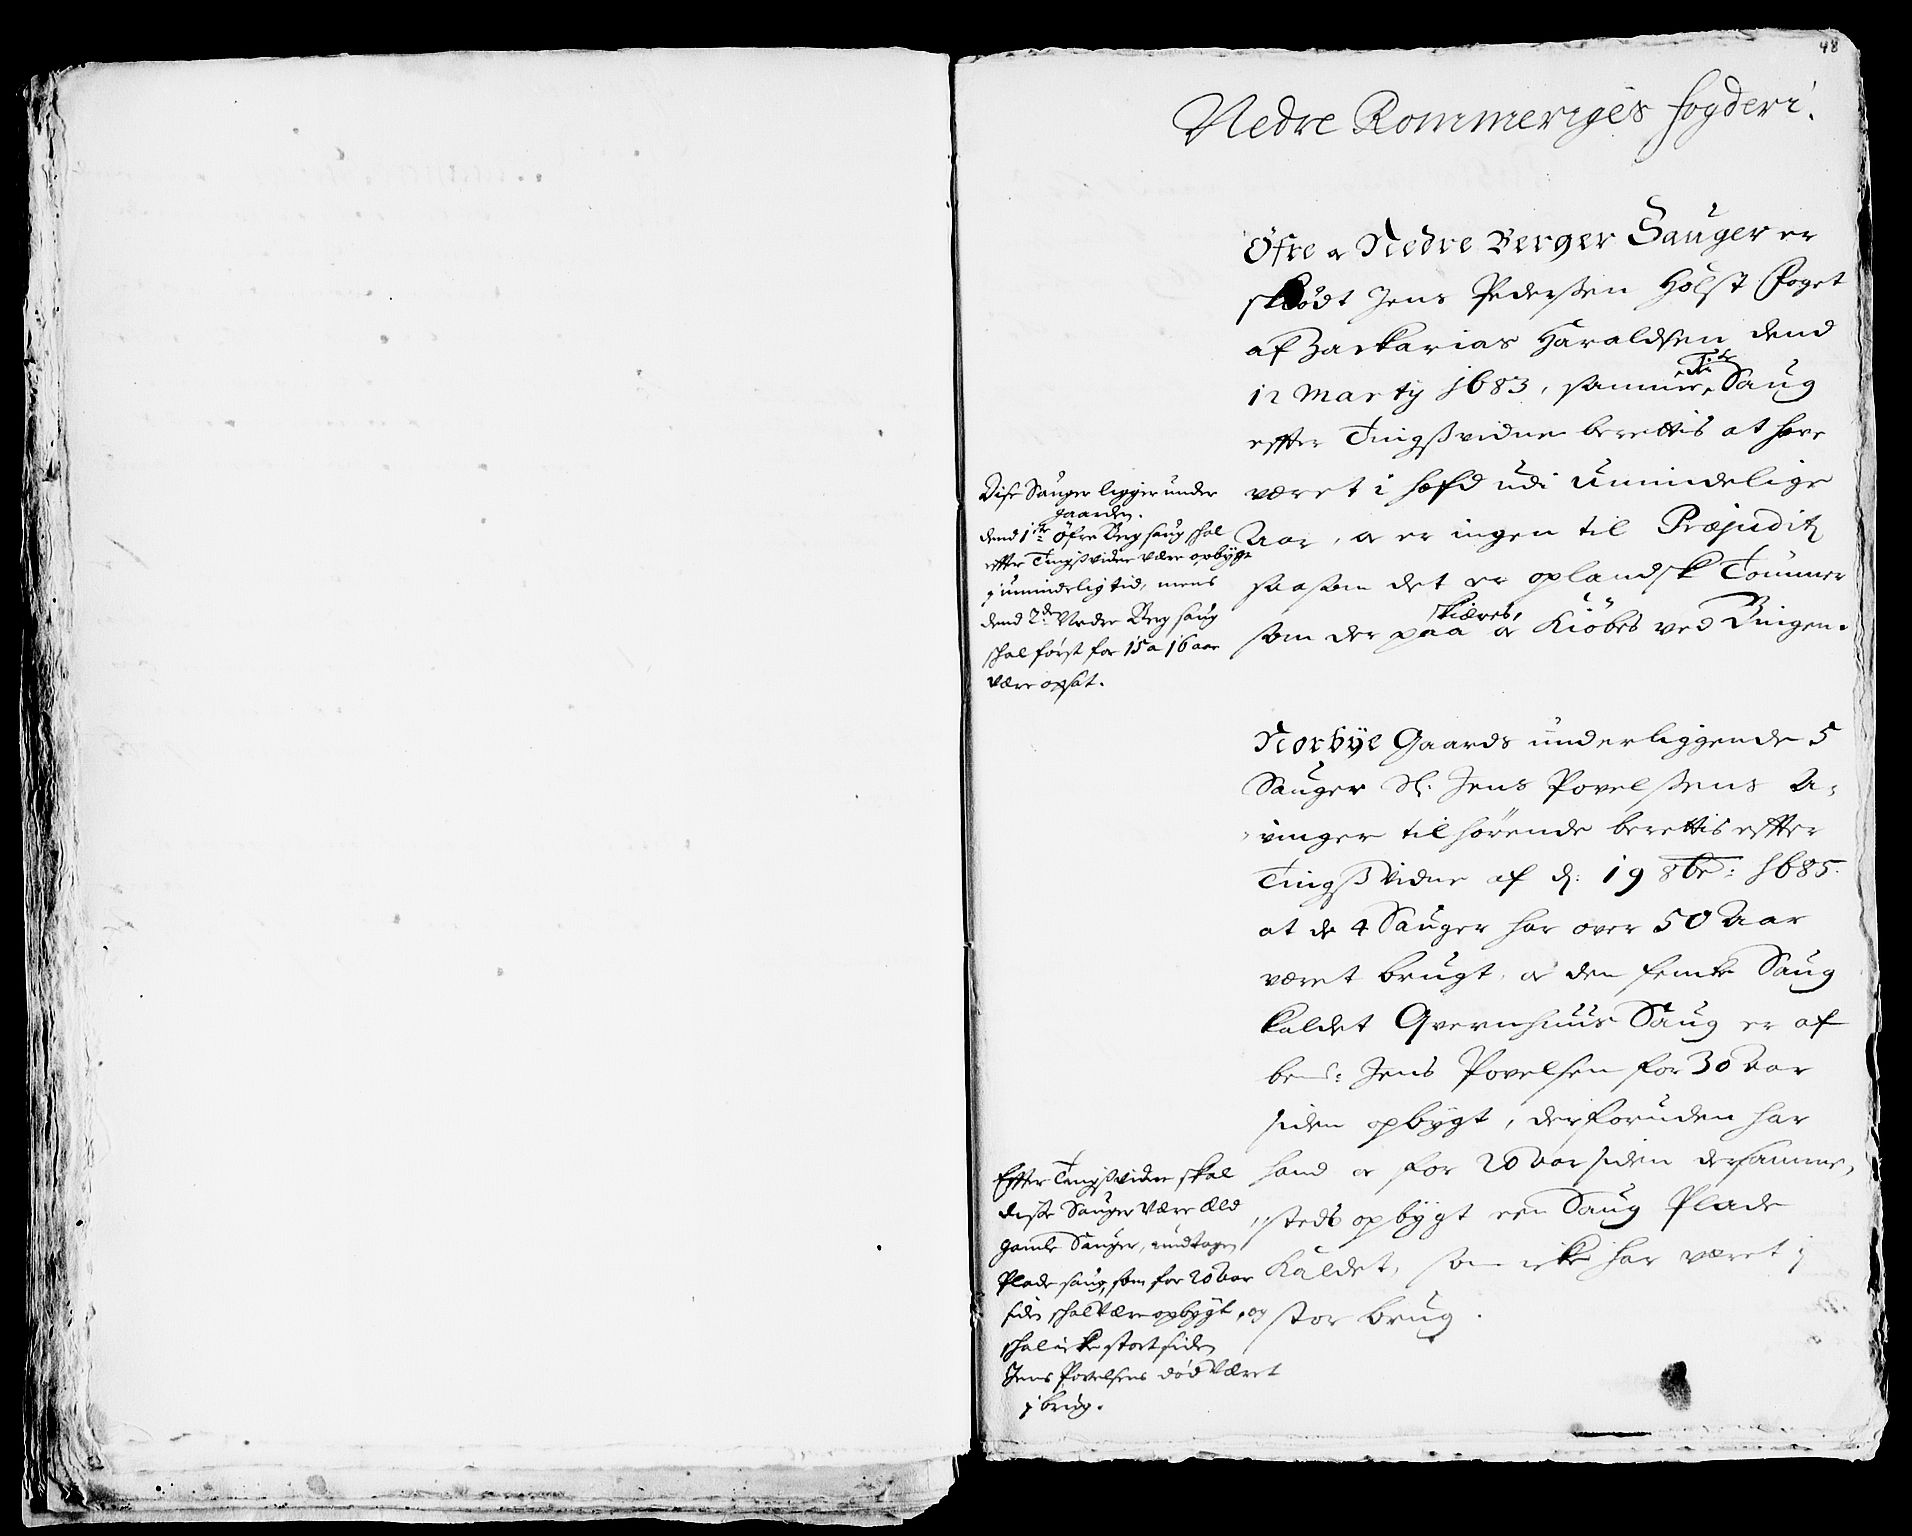 48
Nedre Rommeriges fogderi.
Öfre oc Nedre Berger Sauger er
skiödt Jens Pederßen Holst Foget
af Zackarias Haraldsen dend
12 Marty 1683, samme Saug
effter Tingßvidne berettis at hafve
været i hæfd udi umindelige
Aar, oc er ingen til Præjuditz
saasom det er oplandsk Tømmer
skiæres,
som der paa oc Kiöbes ved Bingen.
Disse Sauger ligger under
gaarden.
dend 1ste Öfre Berg saug skal
effter Tingßvidne være opbygt
j umindelig tid, mens
dend 2den Nedre Berg saug
skal først for 15 a 16 aar
være opsat.
Norbÿe Gaards underliggende 5
Sauger Sl: Jens Povelßens A-
vinger tilhørende berettis effter
Tingßvidne af d: 19 8br: 1685.
at de 4 Sauger har over 50 Aar
været brugt, oc den femte Saug
kaldet Qvernhuus Saug er af
bem: Jens Povelsen for 30 Aar
siden opbygt, derforuden har
hand oc for 20 Aar siden dersamme-
steds opbygt een Saug Plade
Kaldet, som icke har været j
stor brug.
Effter Tingßvidne skal
disse Sauger være Æld
gamle Sauger, undtagen
Plade saug, som for 20 Aar
siden skal være opbygt, og
skal icke stort siden
Jens Povelsens død været
j brug.